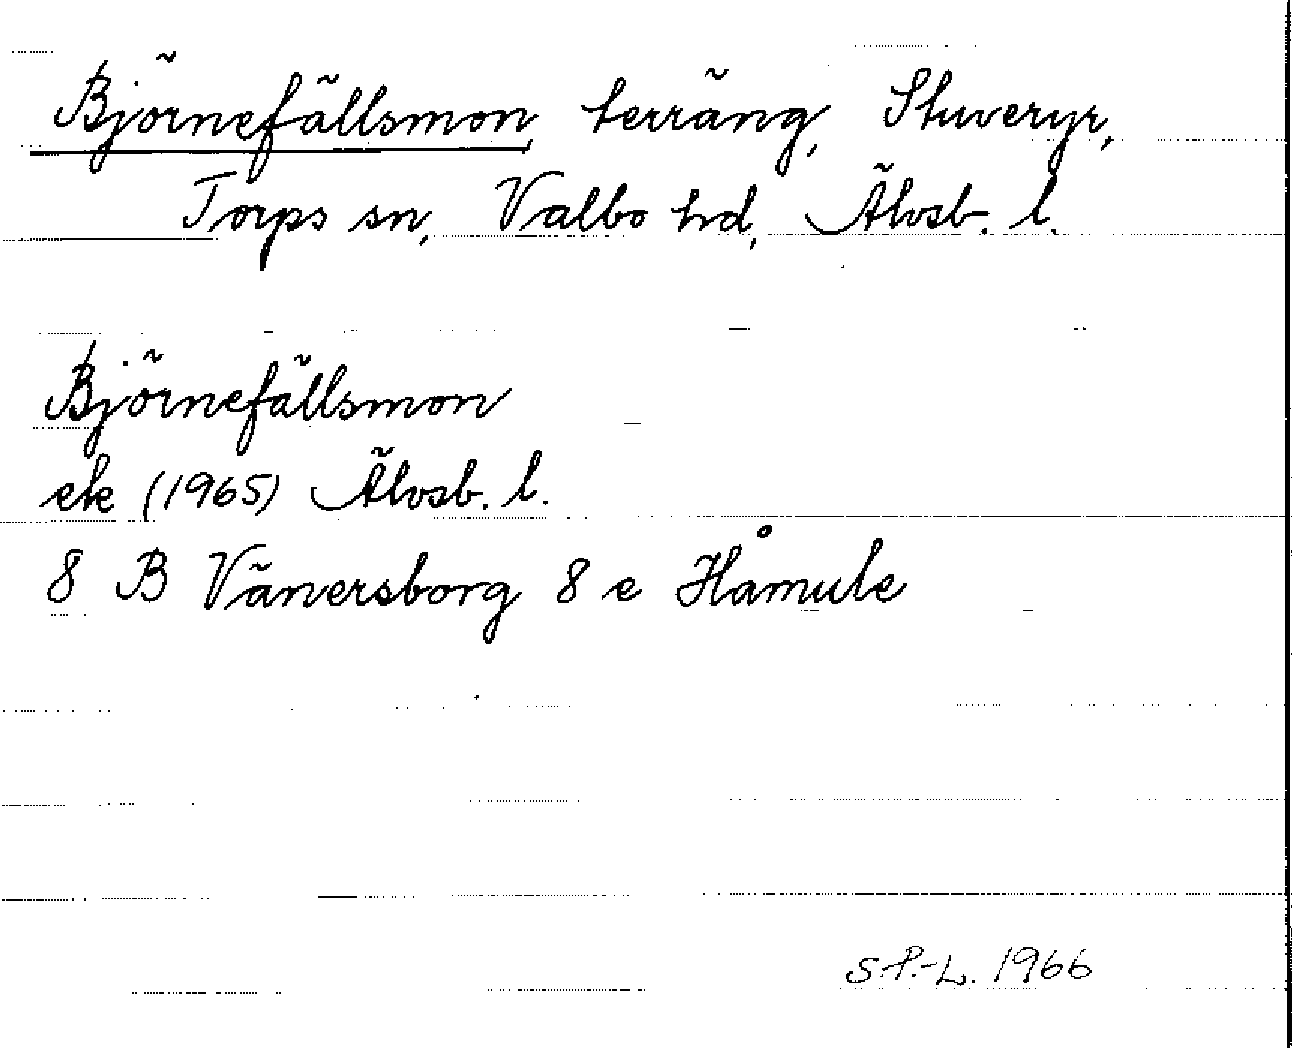 Björnefällsmon, terräng, Stuveryr,
Torps sn, Valbo hd, Älvsb. l.
Björnefällsmon
ek (1965) Älvsb. l.
8 B Vänersborg 8 e Håmule
S.P.-L. 1966